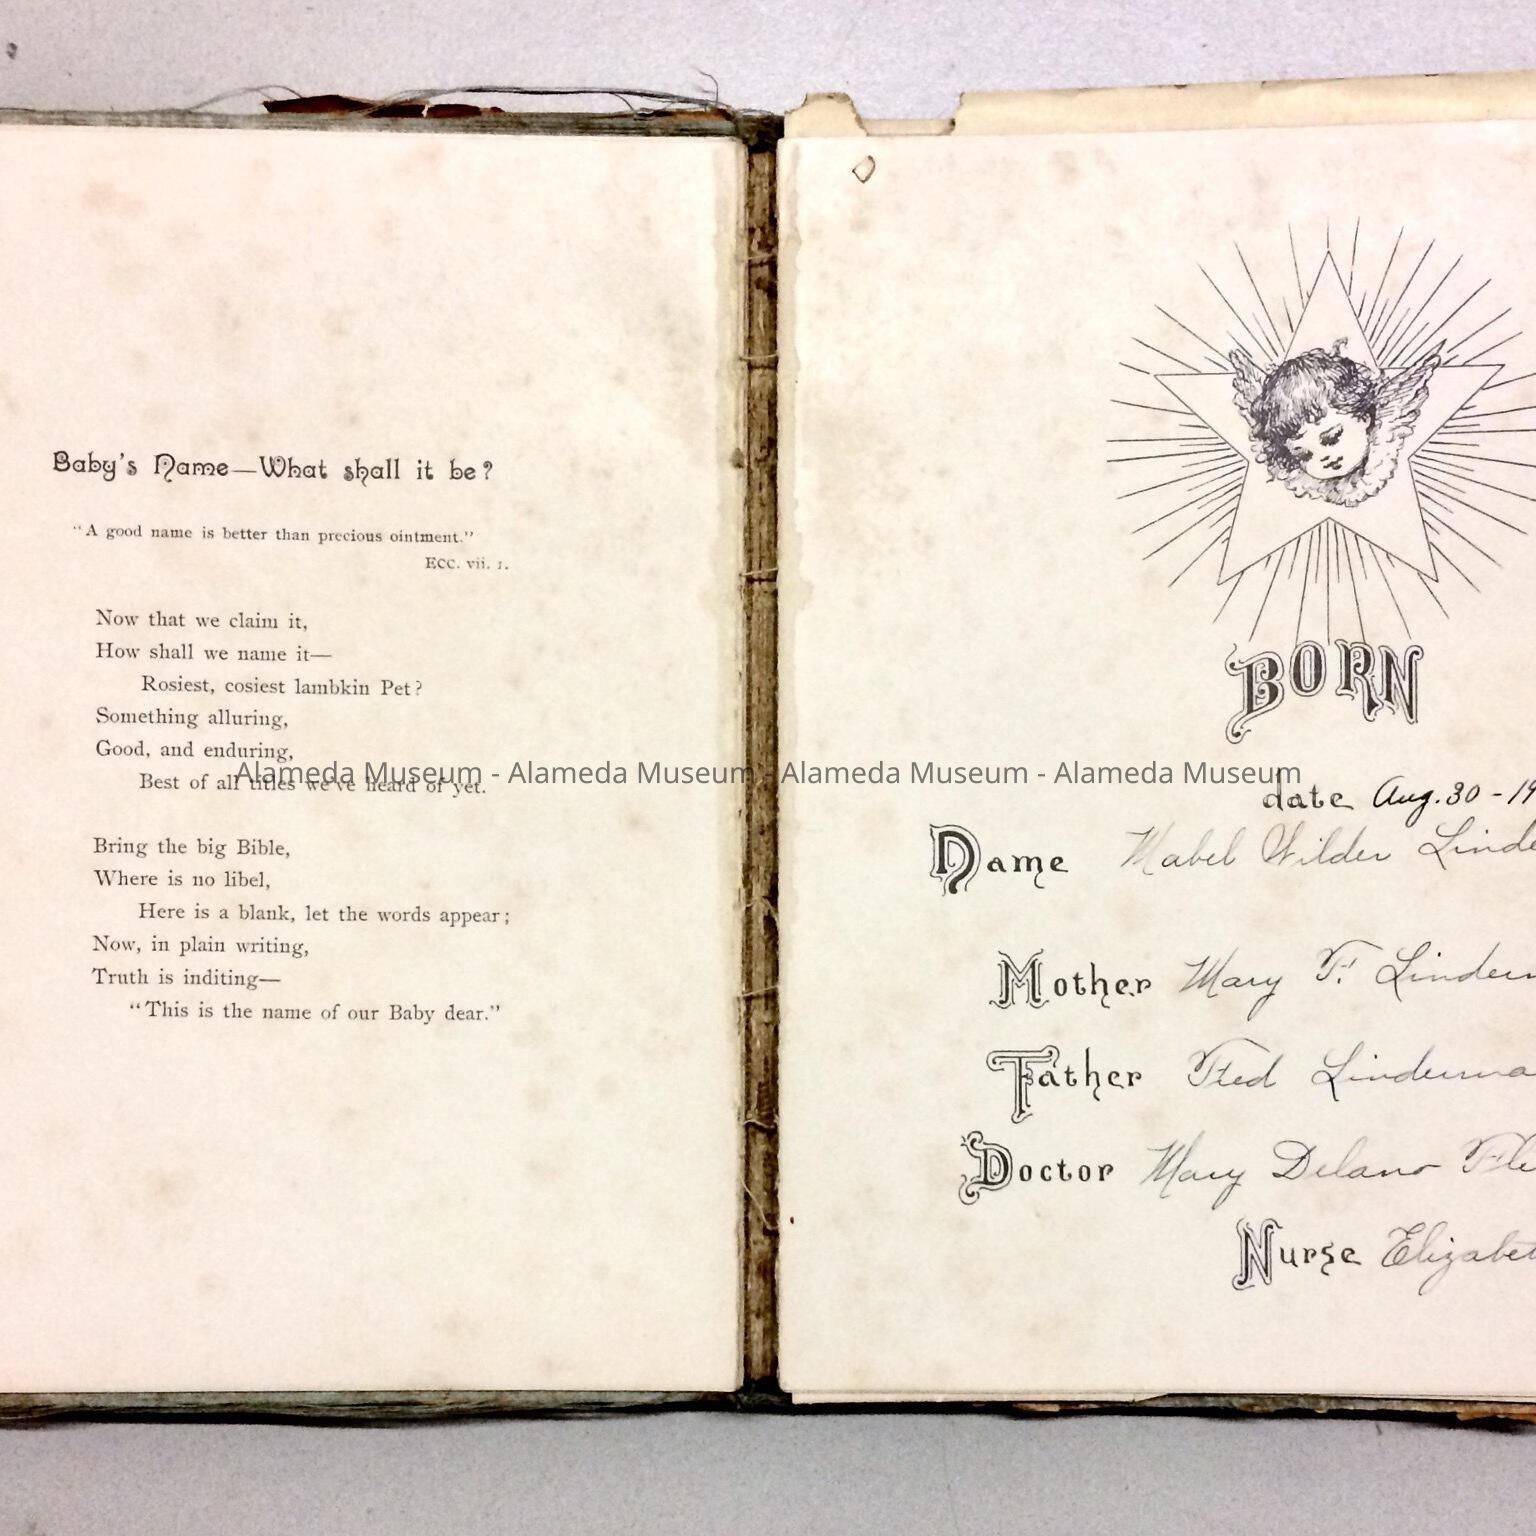 Baby's Name—What shall it be?
"A good name is better than precious ointment."
ECC. vii. 1.
Now that we claim it,
How shall we name it—
Rosiest, cosiest lambkin Pet?
Something alluring,
Good, and enduring,
Best of all titles we've heard of yet.
Bring the big Bible,
Where is no libel,
Here is a blank, let the words appear;
Now, in plain writing,
Truth is inditing—
"This is the name of our Baby dear."
Alameda Museum - Alameda Museum - Alameda Museum - Alameda Museum
BORN
date Aug. 30 - 19
Name Mabel Wilder Linde
Mother Mary F. Linderm
Father Fred Linderma
Doctor Mary Delano Fle
Nurse Elizabet